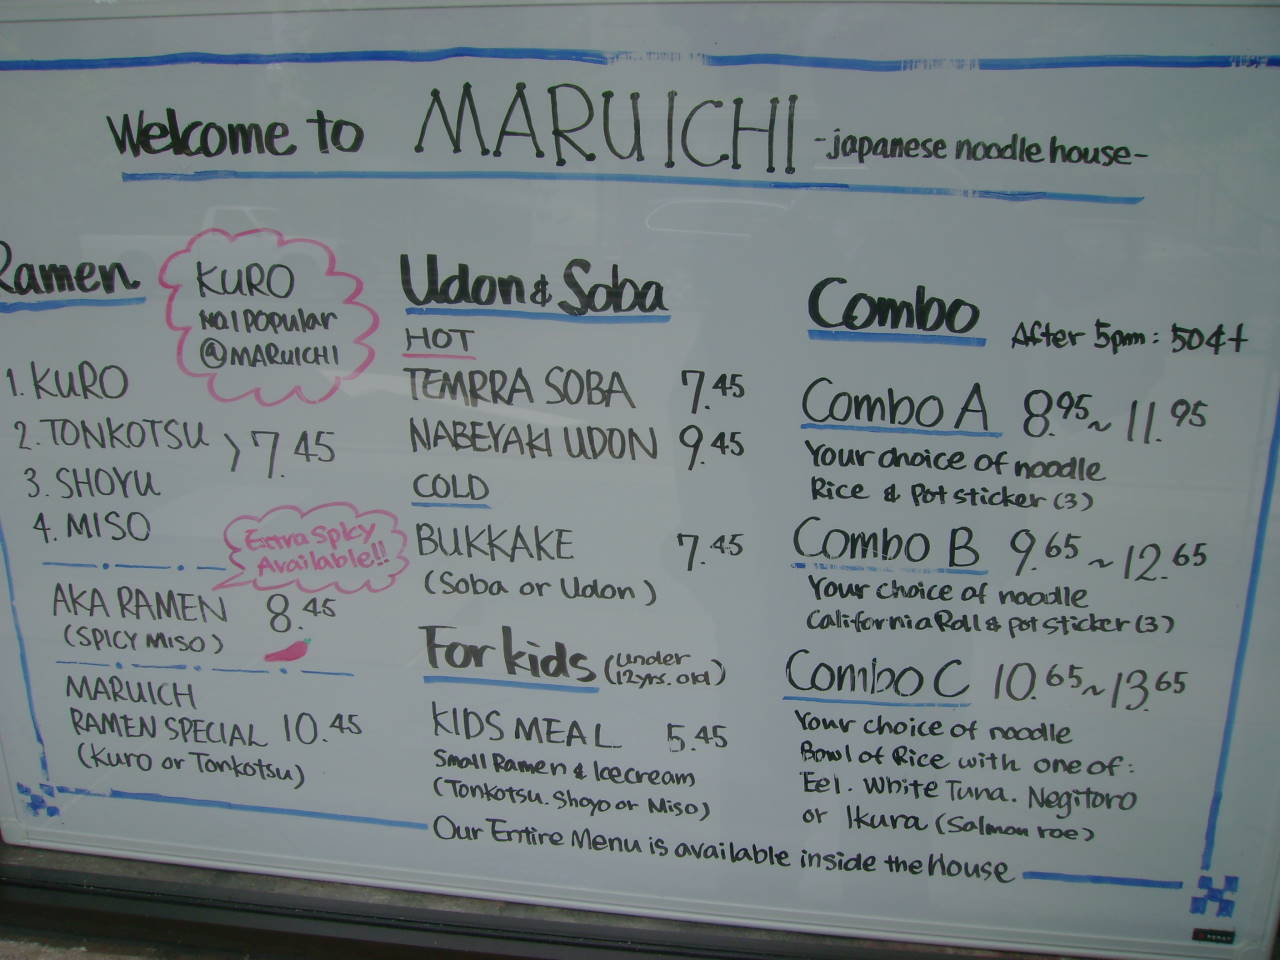 Welcome to MARUICHI -japanese noodle house-
Ramen
KURO
No.1 POPULAR
@MARUICHI
1. KURO
2. TONKOTSU
3. SHOYU
4. MISO
7.45
Extra Spicy
Available!!
AKA RAMEN 8.45
(SPICY MISO)
MARUICH
RAMEN SPECIAL 10.45
(Kuro or Tonkotsu)
Udon & Soba
HOT
TEMRRA SOBA 7.45
NABEYAKI UDON 9.45
COLD
BUKKAKE 7.45
(Soba or Udon)
For kids (under
12yrs. old)
KIDS MEAL 5.45
Small Ramen & Icecream
(Tonkotsu. Shoyo or Miso)
Combo After 5pm: 50¢+
Combo A 8.95~11.95
Your choice of noodle
Rice & Pot sticker (3)
Combo B 9.65~12.65
Your choice of noodle
California Roll & pot sticker (3)
Combo C 10.65~13.65
Your choice of noodle
Bowl of Rice with one of:
Eel. White Tuna. Negitoro
or Ikura (Salmon roe)
Our Entire Menu is available inside the House